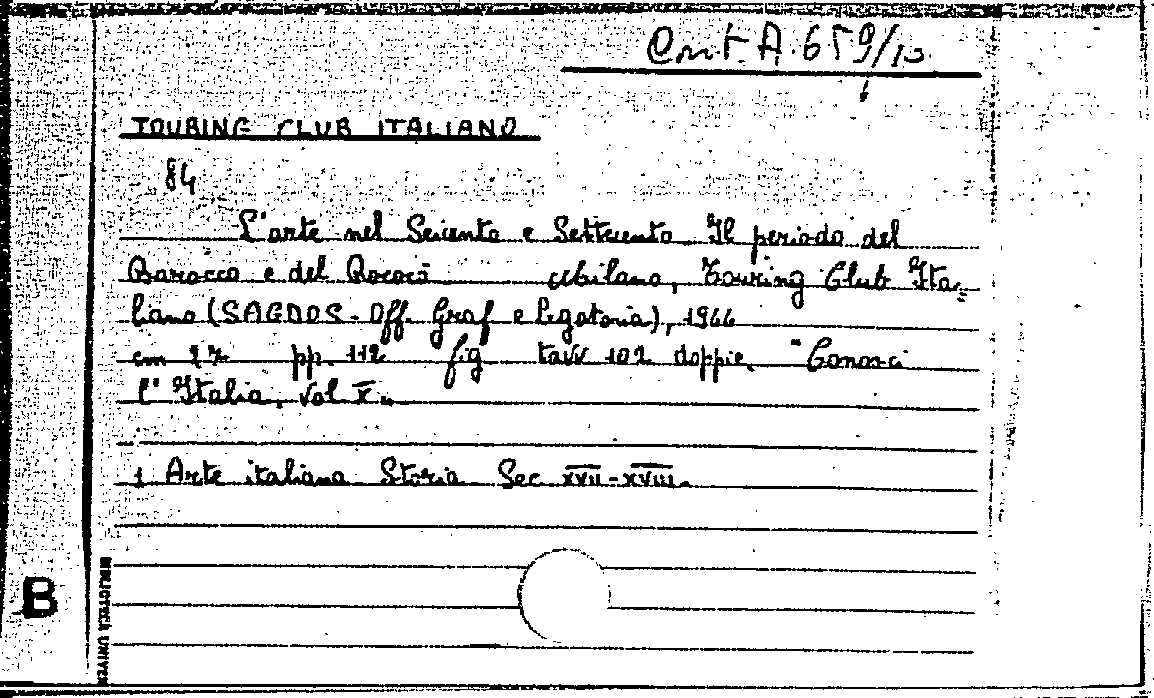 Cont. A. 659/10
TOURING CLUB ITALIANO
84
L'arte nel Seicento e Settecento Il periodo del
Barocco e del Rococò Milano, Touring Club Ita=
liano (SAGDOS - Off. Graf e Legatoria), 1966
cm 27 pp. 112 fig tavv 102 doppie. "Conosci
l'Italia, vol X„
1 Arte italiana Storia Sec XVII-XVIII.
B
BIBLIOTECA UNIVER